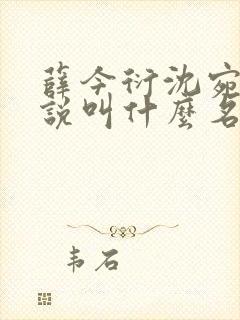 薛今衍沈宛
說叫什麼名
韦石